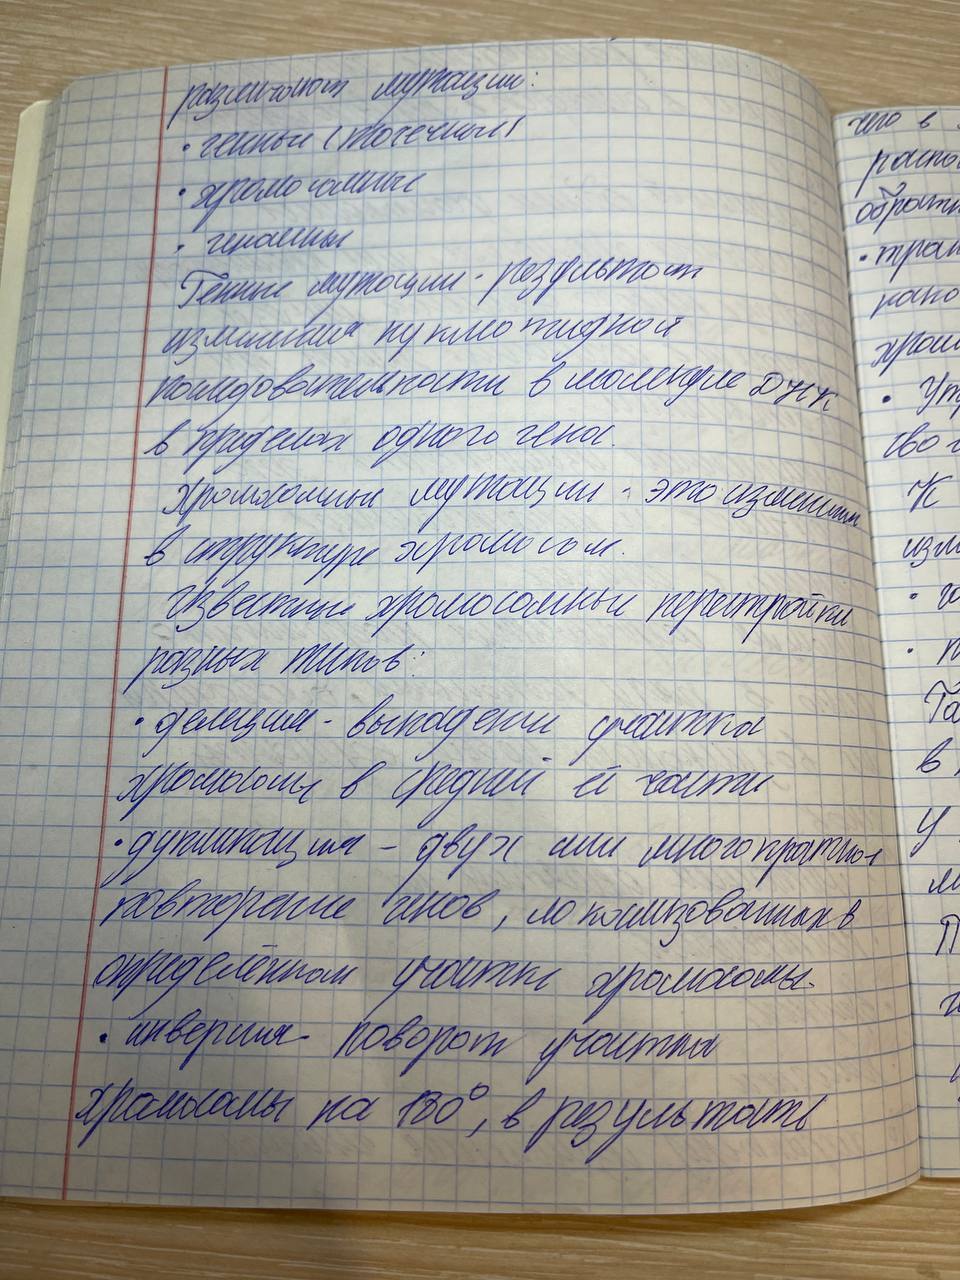 различают мутации:
• генные (точечные)
• хромосомные
• геномные
Генные мутации - результат
изменения нуклеотидной
последовательности в молекуле ДНК
в пределах одного гена.
Хромосомные мутации - это изменения
в структуре хромосом.
Известны хромосомные перестройки
разных типов:
• делеция - выпадение участка
хромосомы в средней её части
• дупликация - двух или многократное
повторение генов, локализованных в
определённом участке хромосомы.
• инверсия - поворот участка
хромосомы на 180°, в результате
чего в
обратн
• тран
хром
• Ут
К
изм
У